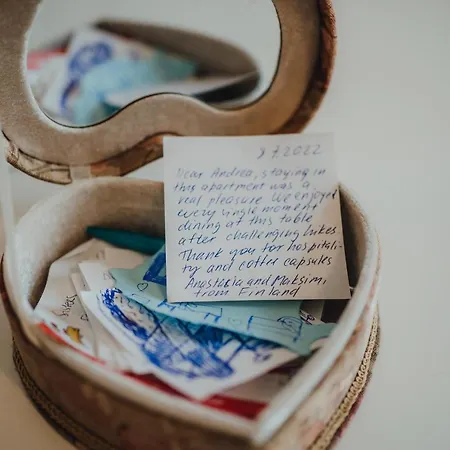 8.7.2022
Dear Andrea, staying in
this apartment was a
real pleasure. We enjoyed
every single moment
dining at this table
after challenging hikes.
Thank you for hospitali-
ty and coffee capsules
Anastasia and Maksim,
from Finland